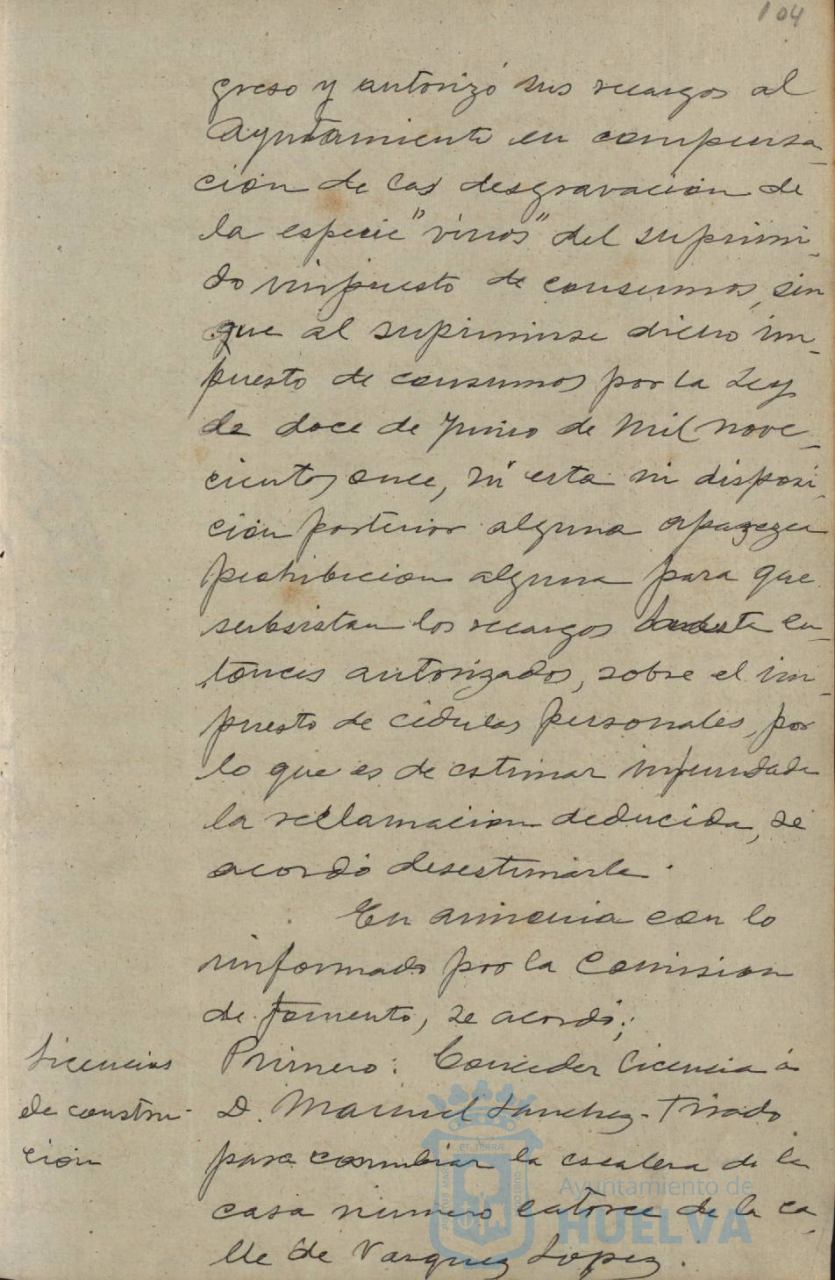 104
greso y autorizó sus recargos al
Ayuntamiento en compensa-
ción de las desgravacion de
la especie "vinos" del suprimi-
do impuesto de consumos, sin
que al suprimirse dicho im-
puesto de consumos por la Ley
de doce de Junio de mil nove-
cientos once, ni esta ni disposi-
ción posterior alguna aparezca
prohibicion alguna para que
subsistan los recargos hasta en-
tonces autorizados, sobre el im-
puesto de cédulas personales, por
lo que es de estimar infundada
la reclamacion deducida, se
acordó desestimarla.
En armonia con lo
informado por la Comision
de fomento, se acordó;
Licencias
de construc-
ción
Primero: Conceder licencia á
D. Manuel Sanchez-Tirado
para cambiar la escalera de la
casa número catorce de la ca-
lle de Vazquez Lopez.
Ayuntamiento de
HUELVA